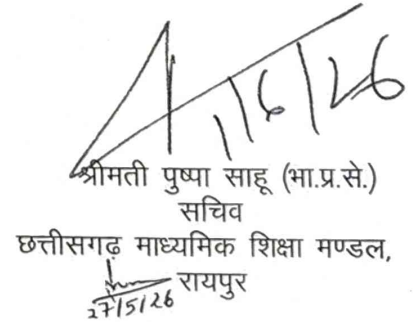 1/6/26
श्रीमती पुष्पा साहू (भा.प्र.से.)
सचिव
छत्तीसगढ़ माध्यमिक शिक्षा मण्डल,
रायपुर
27/5/26